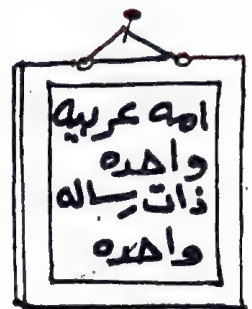 امه عربيه
واحده
ذات رساله
واحده